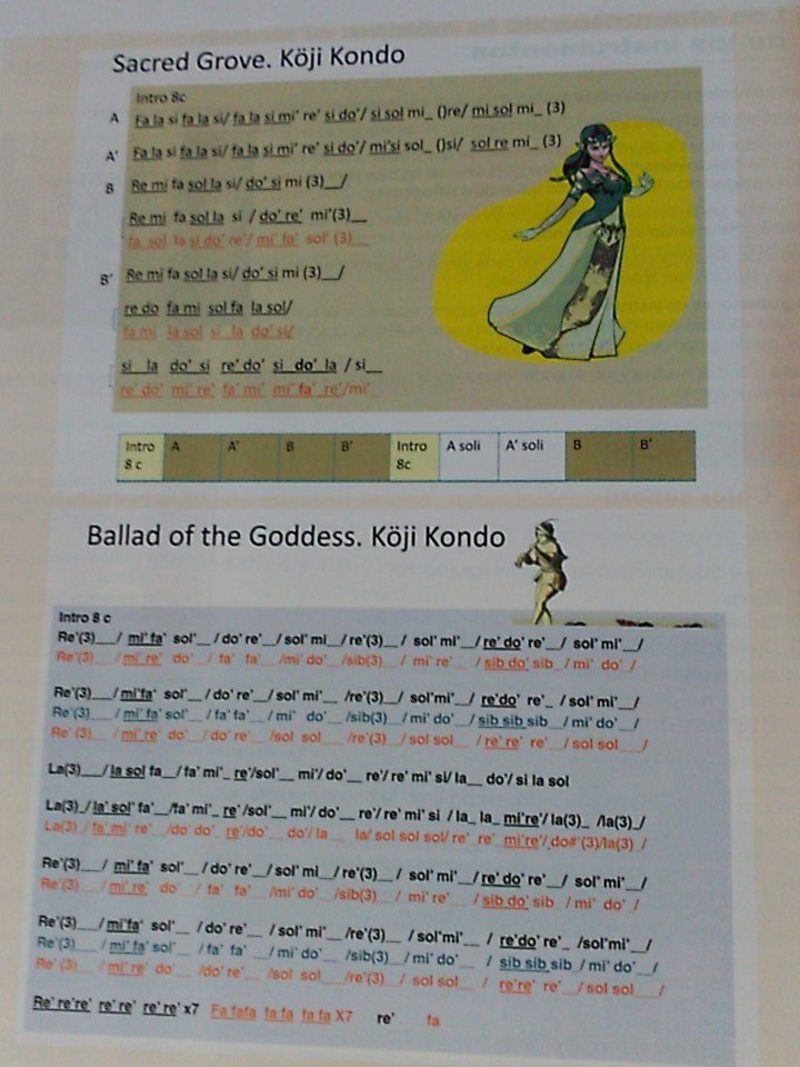 Sacred Grove. Köji Kondo
Intro 8c
A Fa la si fa la si/ fa la si mi' re' si do'/ si sol mi_ ()re/ mi sol mi_ (3)
A' Fa la si fa la si/ fa la si mi' re' si do'/ mi'si sol_ ()si/ sol re mi_ (3)
B Re mi fa sol la si/ do' si mi (3)__/
Re mi fa sol la si / do' re' mi'(3)__
fa sol la si do' re'/ mi' fa' sol' (3)__
B' Re mi fa sol la si/ do' si mi (3)__/
re do fa mi sol fa la sol/
fa mi la sol si la do' si/
si la do' si re' do' si do' la / si__
re' do' mi' re' fa' mi' mi' fa' re'/mi'_
Intro 8 c A A' B B' Intro 8c A soli A' soli B B'
Ballad of the Goddess. Köji Kondo
Intro 8 c
Re'(3)___/ mi' fa' sol'__ / do' re'__/ sol' mi__/ re'(3)__ / sol' mi'__/ re' do' re'__/ sol' mi'__/
Re'(3)___ / mi' re' do'__ / fa' fa'__ /mi' do'__ /sib(3)__ / mi' re'__ / sib do' sib_ / mi' do'_/
Re'(3)___/ mi'fa' sol'__ / do' re'__/ sol' mi'__ /re'(3)__/ sol'mi'__/ re'do' re'_ / sol' mi'__/
Re'(3)___ / mi' fa' sol'__ / fa' fa'__ / mi' do'__ /sib(3)__ / mi' do'__ / sib sib sib__ / mi' do'__/
Re' (3)___ / mi' re' do'__ / do' re'__ /sol sol__ /re'(3)__ / sol sol__ / re' re' re'__ / sol sol___/
La(3)___/ la sol fa__/ fa' mi'_ re'/sol'__ mi'/ do'__ re'/ re' mi' si/ la__ do'/ si la sol
La(3)_/ la' sol' fa'__/fa' mi'_ re' /sol'__ mi'/ do'__ re'/ re' mi' si / la_ la_ mi're'/ la(3)_ /la(3)_/
La(3)_/ fa' mi' re'__ /do' do'_ re'/do'__ do'/ la__ la/ sol sol sol/ re'_ re'_ mi're'/_do#'(3)/la(3)_/
Re'(3)___/ mi' fa' sol'__ / do' re'__/ sol' mi__/ re'(3)__ / sol' mi'__/ re' do' re'__/ sol' mi'__/
Re'(3)___ / mi' re' do'__ / fa' fa'__ /mi' do'__ /sib(3)__ / mi' re'__ / sib do' sib_ / mi' do'_/
Re'(3)___/ mi'fa' sol'__ / do' re'__ / sol' mi'__ /re'(3)__ / sol'mi'__ / re'do' re'_ /sol'mi'__/
Re'(3)___ / mi' fa' sol'__ / fa' fa'__ / mi' do'__ /sib(3)__/ mi' do'__ / sib sib sib_/ mi' do'__/
Re' (3)___ / mi' re' do'__ /do' re'__ /sol sol__/re'(3)__/ sol sol__ / re're' re'__/ sol sol___/
Re' re're' re' re' re' re' x7 Fa fafa fa fa fa fa X7 re' fa